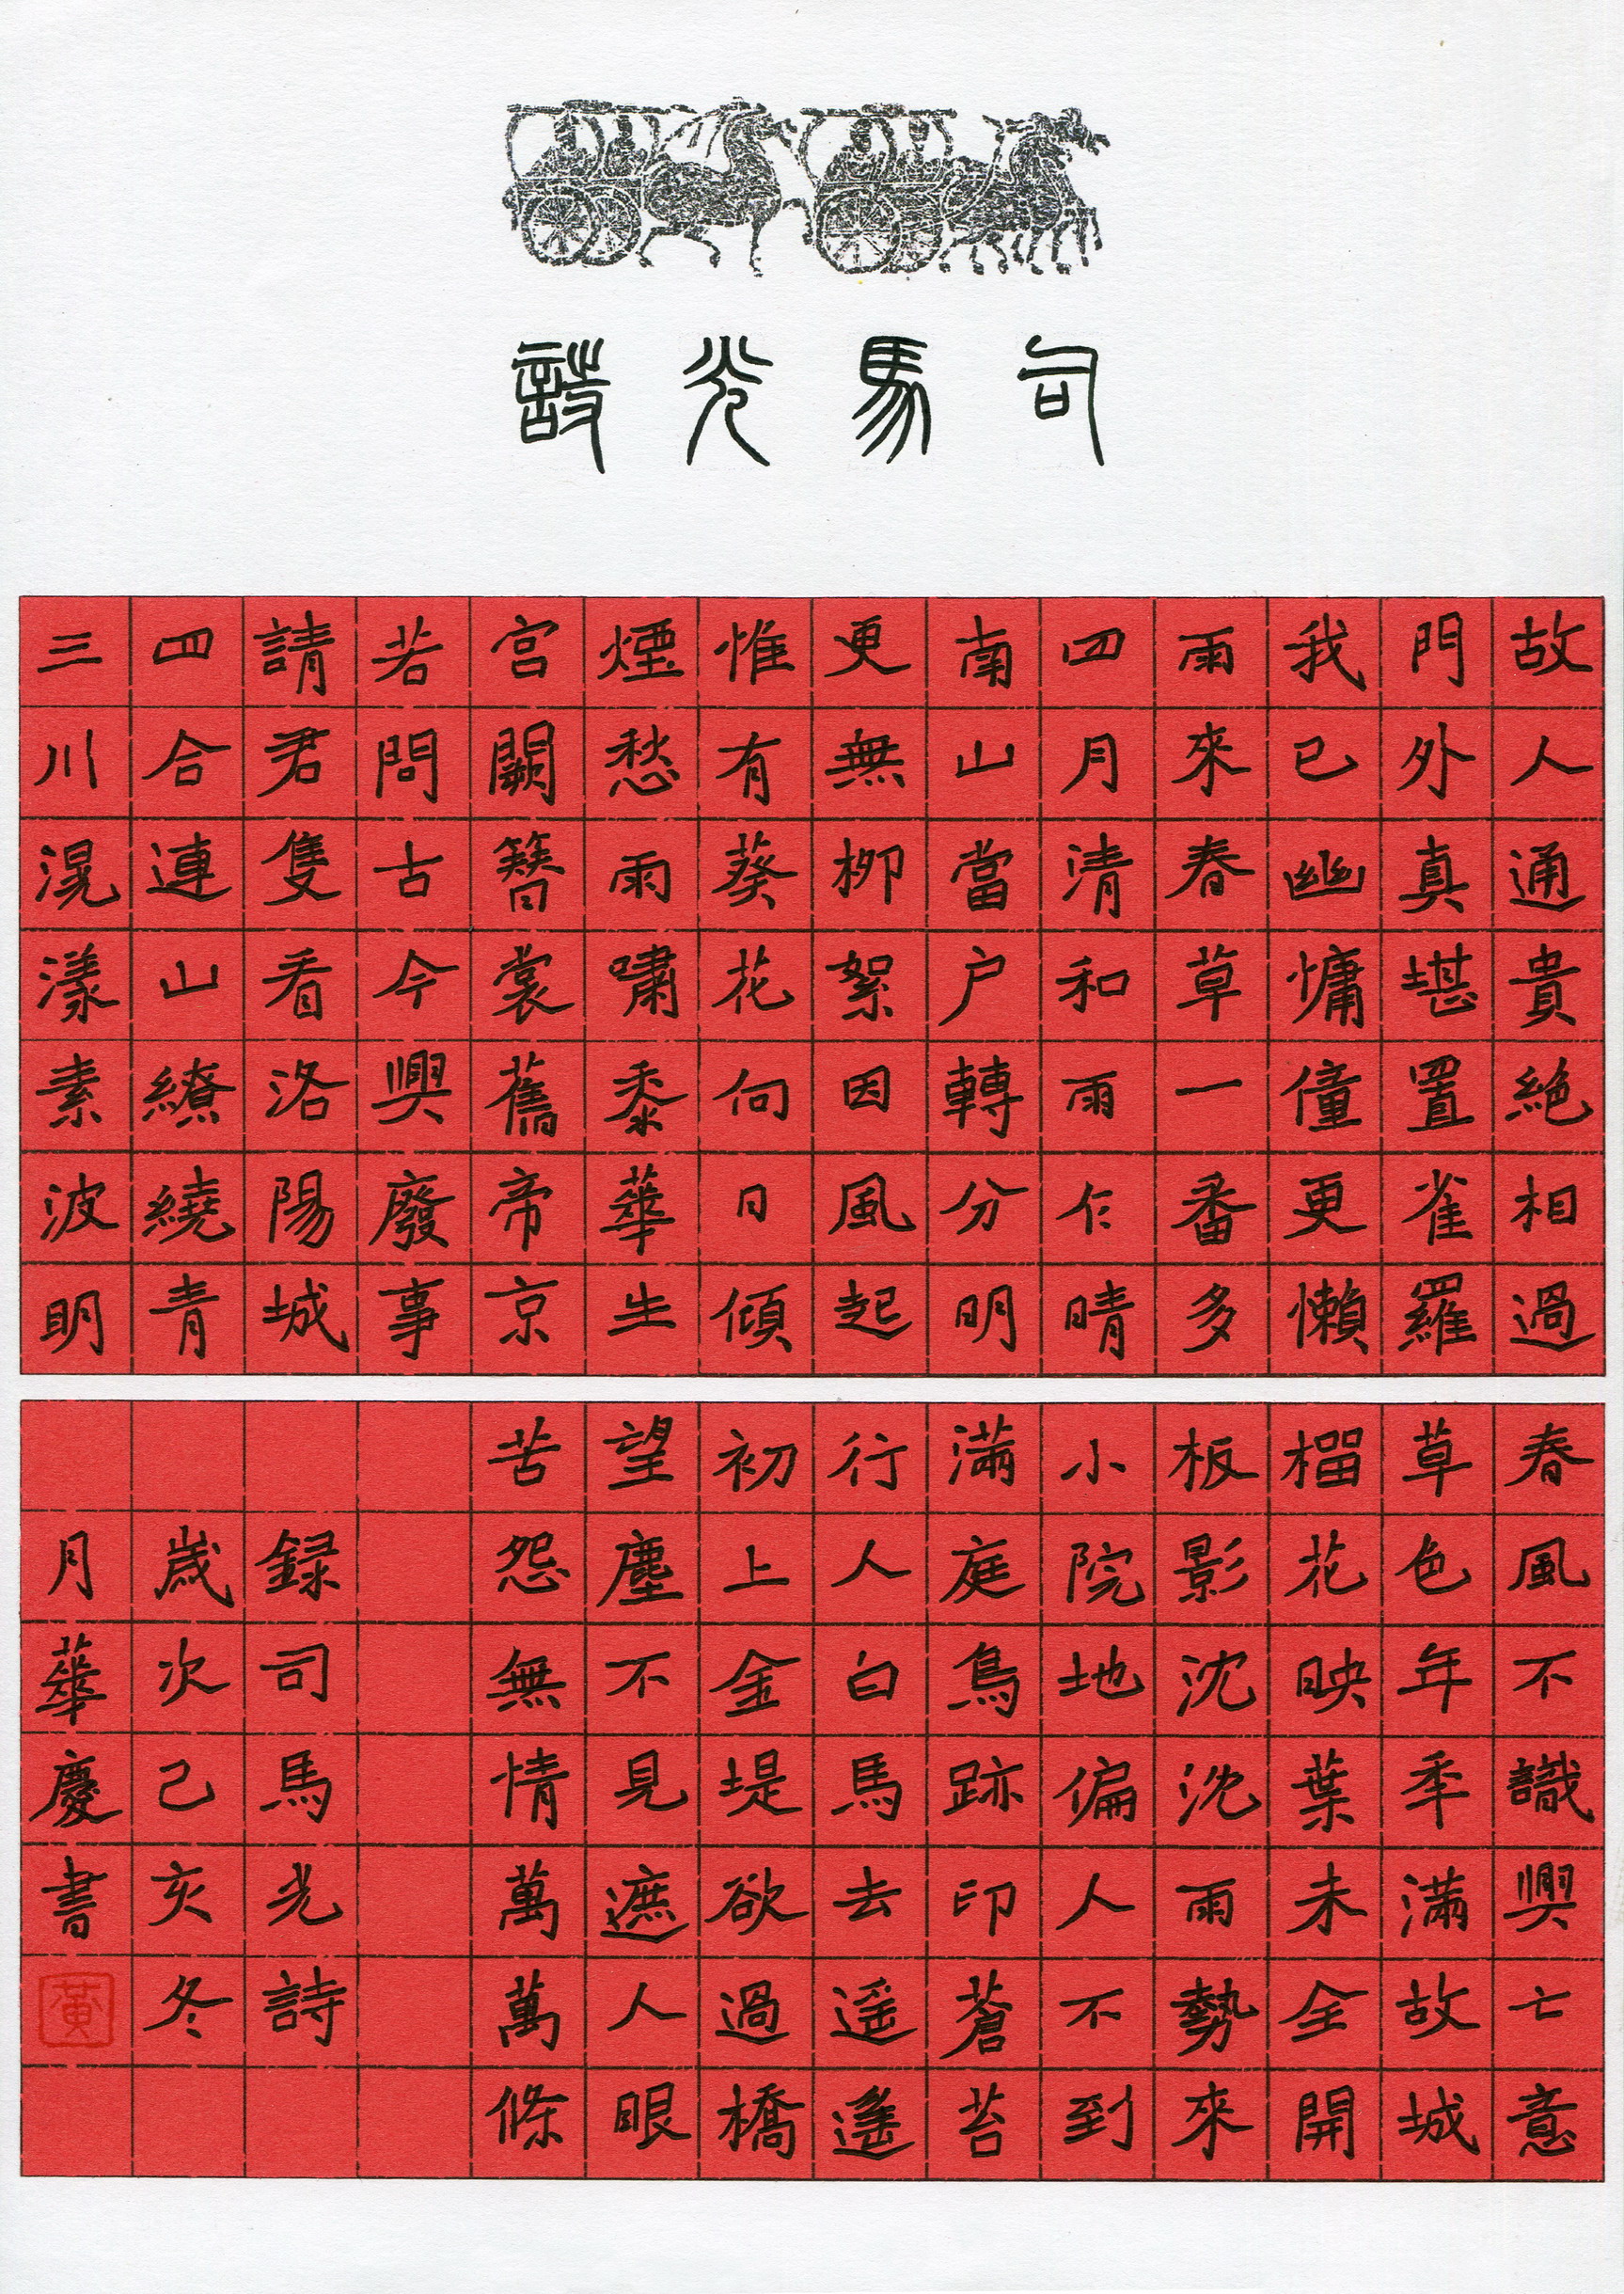 司馬光詩
故人通貴絕相過
門外真堪置雀羅
我已幽慵僮更懶
雨來春草一番多
四月清和雨乍晴
南山當户轉分明
更無柳絮因風起
惟有葵花向日傾
煙愁雨嘯黍華生
宮闕簪裳舊帝京
若問古今興廢事
請君隻看洛陽城
四合連山繚繞青
三川滉漾素波明
春風不識興亡意
草色年季滿故城
榴花映葉未全開
板影沈沈雨勢來
小院地偏人不到
滿庭鳥跡印蒼苔
行人白馬去遥遙
初上金堤欲過橋
望塵不見遮人眼
苦怨無情萬萬條
録司馬光詩
歲次己亥冬
月華慶書
黃